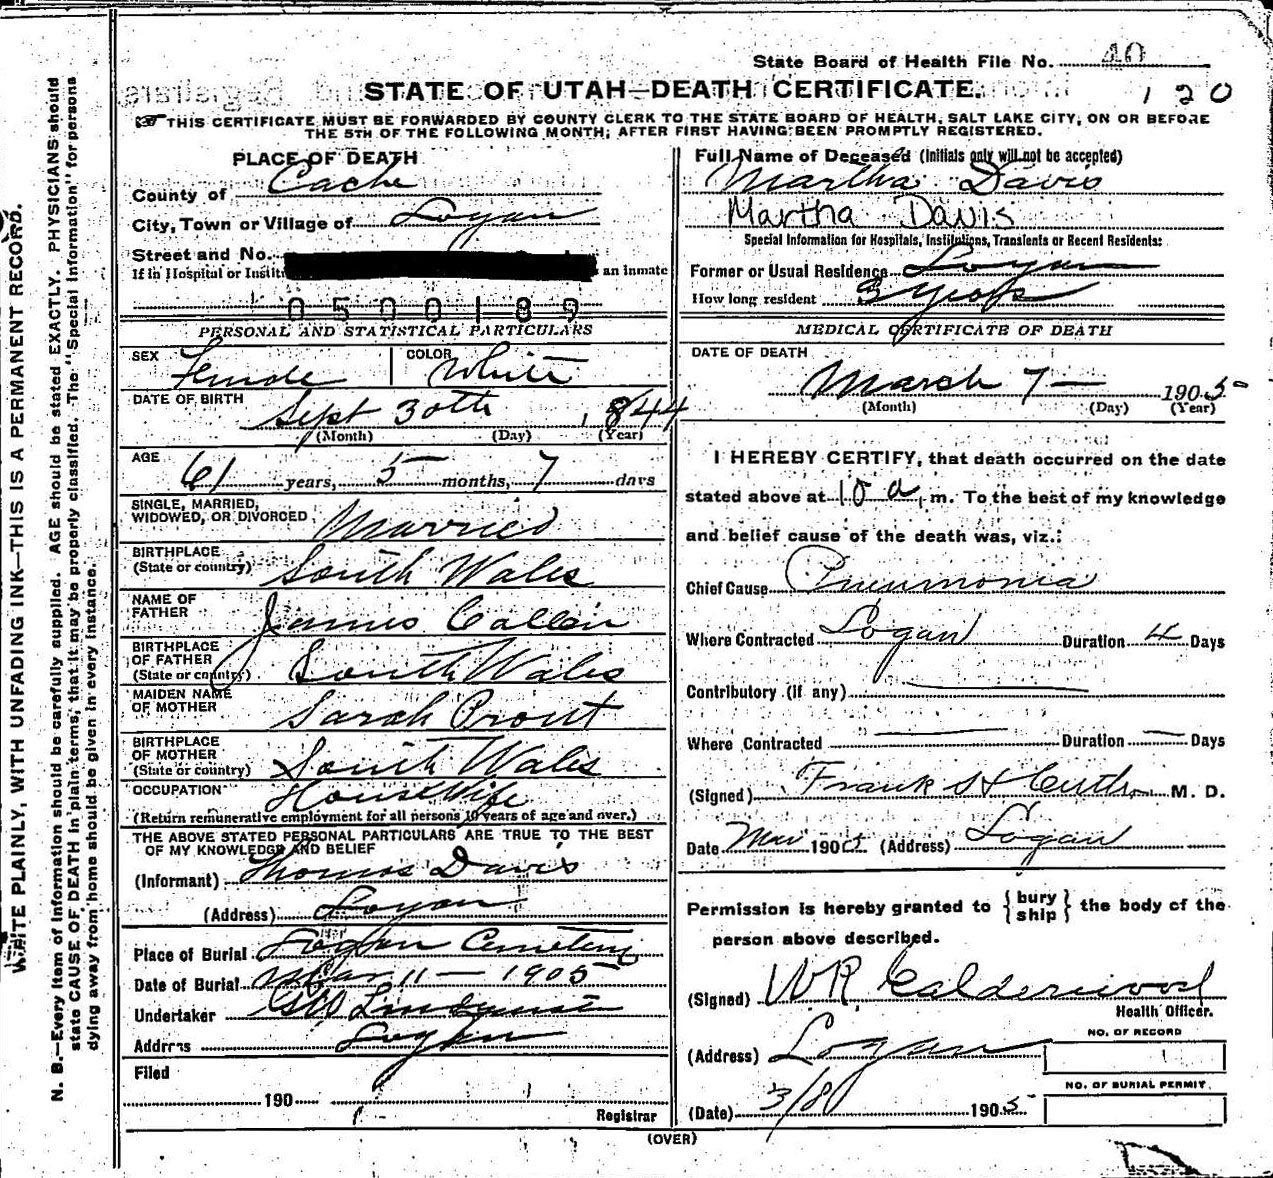 State Board of Health File No. 40
STATE OF UTAH—DEATH CERTIFICATE.
120
THIS CERTIFICATE MUST BE FORWARDED BY COUNTY CLERK TO THE STATE BOARD OF HEALTH, SALT LAKE CITY, ON OR BEFORE
THE 5TH OF THE FOLLOWING MONTH; AFTER FIRST HAVING BEEN PROMPTLY REGISTERED.
PLACE OF DEATH
County of Cache
City, Town or Village of Logan
Street and No.
If in Hospital or Instit an inmate
0500189
PERSONAL AND STATISTICAL PARTICULARS
SEX Female COLOR White
DATE OF BIRTH Sept 30th, 1844
(Month) (Day) (Year)
AGE 61 years, 5 months, 7 days
SINGLE, MARRIED,
WIDOWED, OR DIVORCED Married
BIRTHPLACE
(State or country) South Wales
NAME OF
FATHER James Callen
BIRTHPLACE
OF FATHER
(State or country) South Wales
MAIDEN NAME
OF MOTHER Sarah Prout
BIRTHPLACE
OF MOTHER
(State or country) South Wales
OCCUPATION Housewife
(Return remunerative employment for all persons 10 years of age and over.)
THE ABOVE STATED PERSONAL PARTICULARS ARE TRUE TO THE BEST
OF MY KNOWLEDGE AND BELIEF
(Informant) Thomas Davis
(Address) Logan
Place of Burial Logan Cemetery
Date of Burial Mar 11 — 1905
Undertaker GW Lindquist
Address Logan
Filed
190
Registrar
Full Name of Deceased (Initials only will not be accepted)
Martha Davis
Martha Davis
Special Information for Hospitals, Institutions, Transients or Recent Residents:
Former or Usual Residence Logan
How long resident 3 years
MEDICAL CERTIFICATE OF DEATH
DATE OF DEATH
March 7 — 1905
(Month) (Day) (Year)
I HEREBY CERTIFY, that death occurred on the date
stated above at 10 a. m. To the best of my knowledge
and belief cause of the death was, viz.:
Chief Cause Pneumonia
Where Contracted Logan Duration 4 Days
Contributory (if any) —
Where Contracted — Duration — Days
(Signed) Frank M. D.
Date Mar 1905 (Address) Logan
Permission is hereby granted to { bury ship } the body of the
person above described.
(Signed) WR Calderwood
Health Officer.
(Address) Logan
NO. OF RECORD
NO. OF BURIAL PERMIT
(Date) 3/8 1905
(OVER)
WRITE PLAINLY, WITH UNFADING INK—THIS IS A PERMANENT RECORD.
N. B.—Every item of information should be carefully supplied. AGE should be stated EXACTLY. PHYSICIANS should
state CAUSE OF DEATH in plain terms, that it may be properly classified. The "Special Information" for persons
dying away from home should be given in every instance.